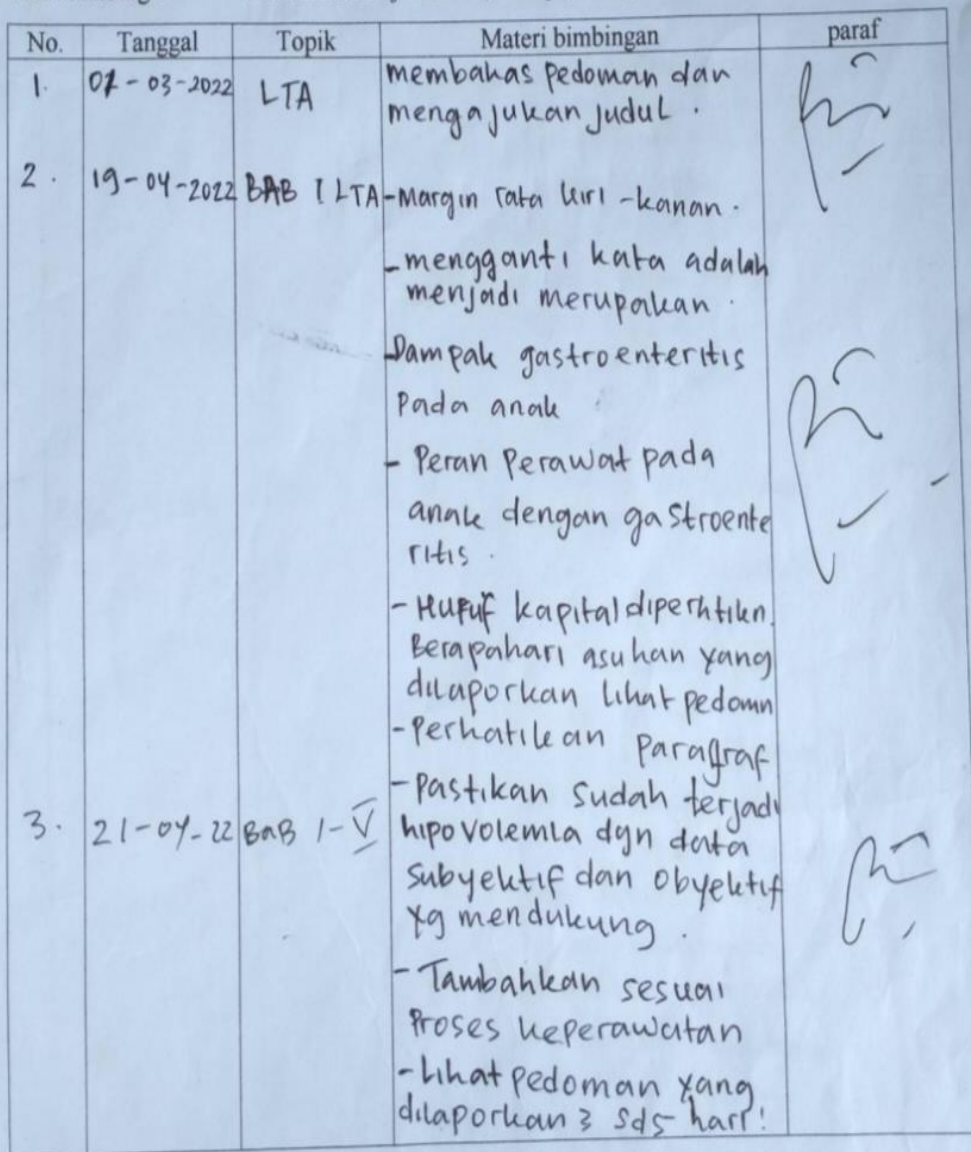 No. Tanggal Topik Materi bimbingan paraf
1. 01-03-2022 LTA membahas pedoman dan
mengajukan judul.
2. 19-04-2022 BAB I LTA -Margin rata kiri -kanan.
-mengganti kata adalah
menjadi merupakan.
-Dampak gastroenteritis
Pada anak
- Peran Perawat pada
anak dengan gastroente
ritis.
- Huruf kapital diperhtikn.
Berapahari asuhan yang
dilaporkan lihat pedomn
-Perhatikan Paragraf
-Pastikan sudah terjadi
3. 21-04-22 BaB I-V hipovolemia dgn data
Subyektif dan Obyektif
yg mendukung.
- Tambahkan sesuai
Proses keperawatan
-Lihat pedoman yang
dilaporkan 3 sd5 hari!